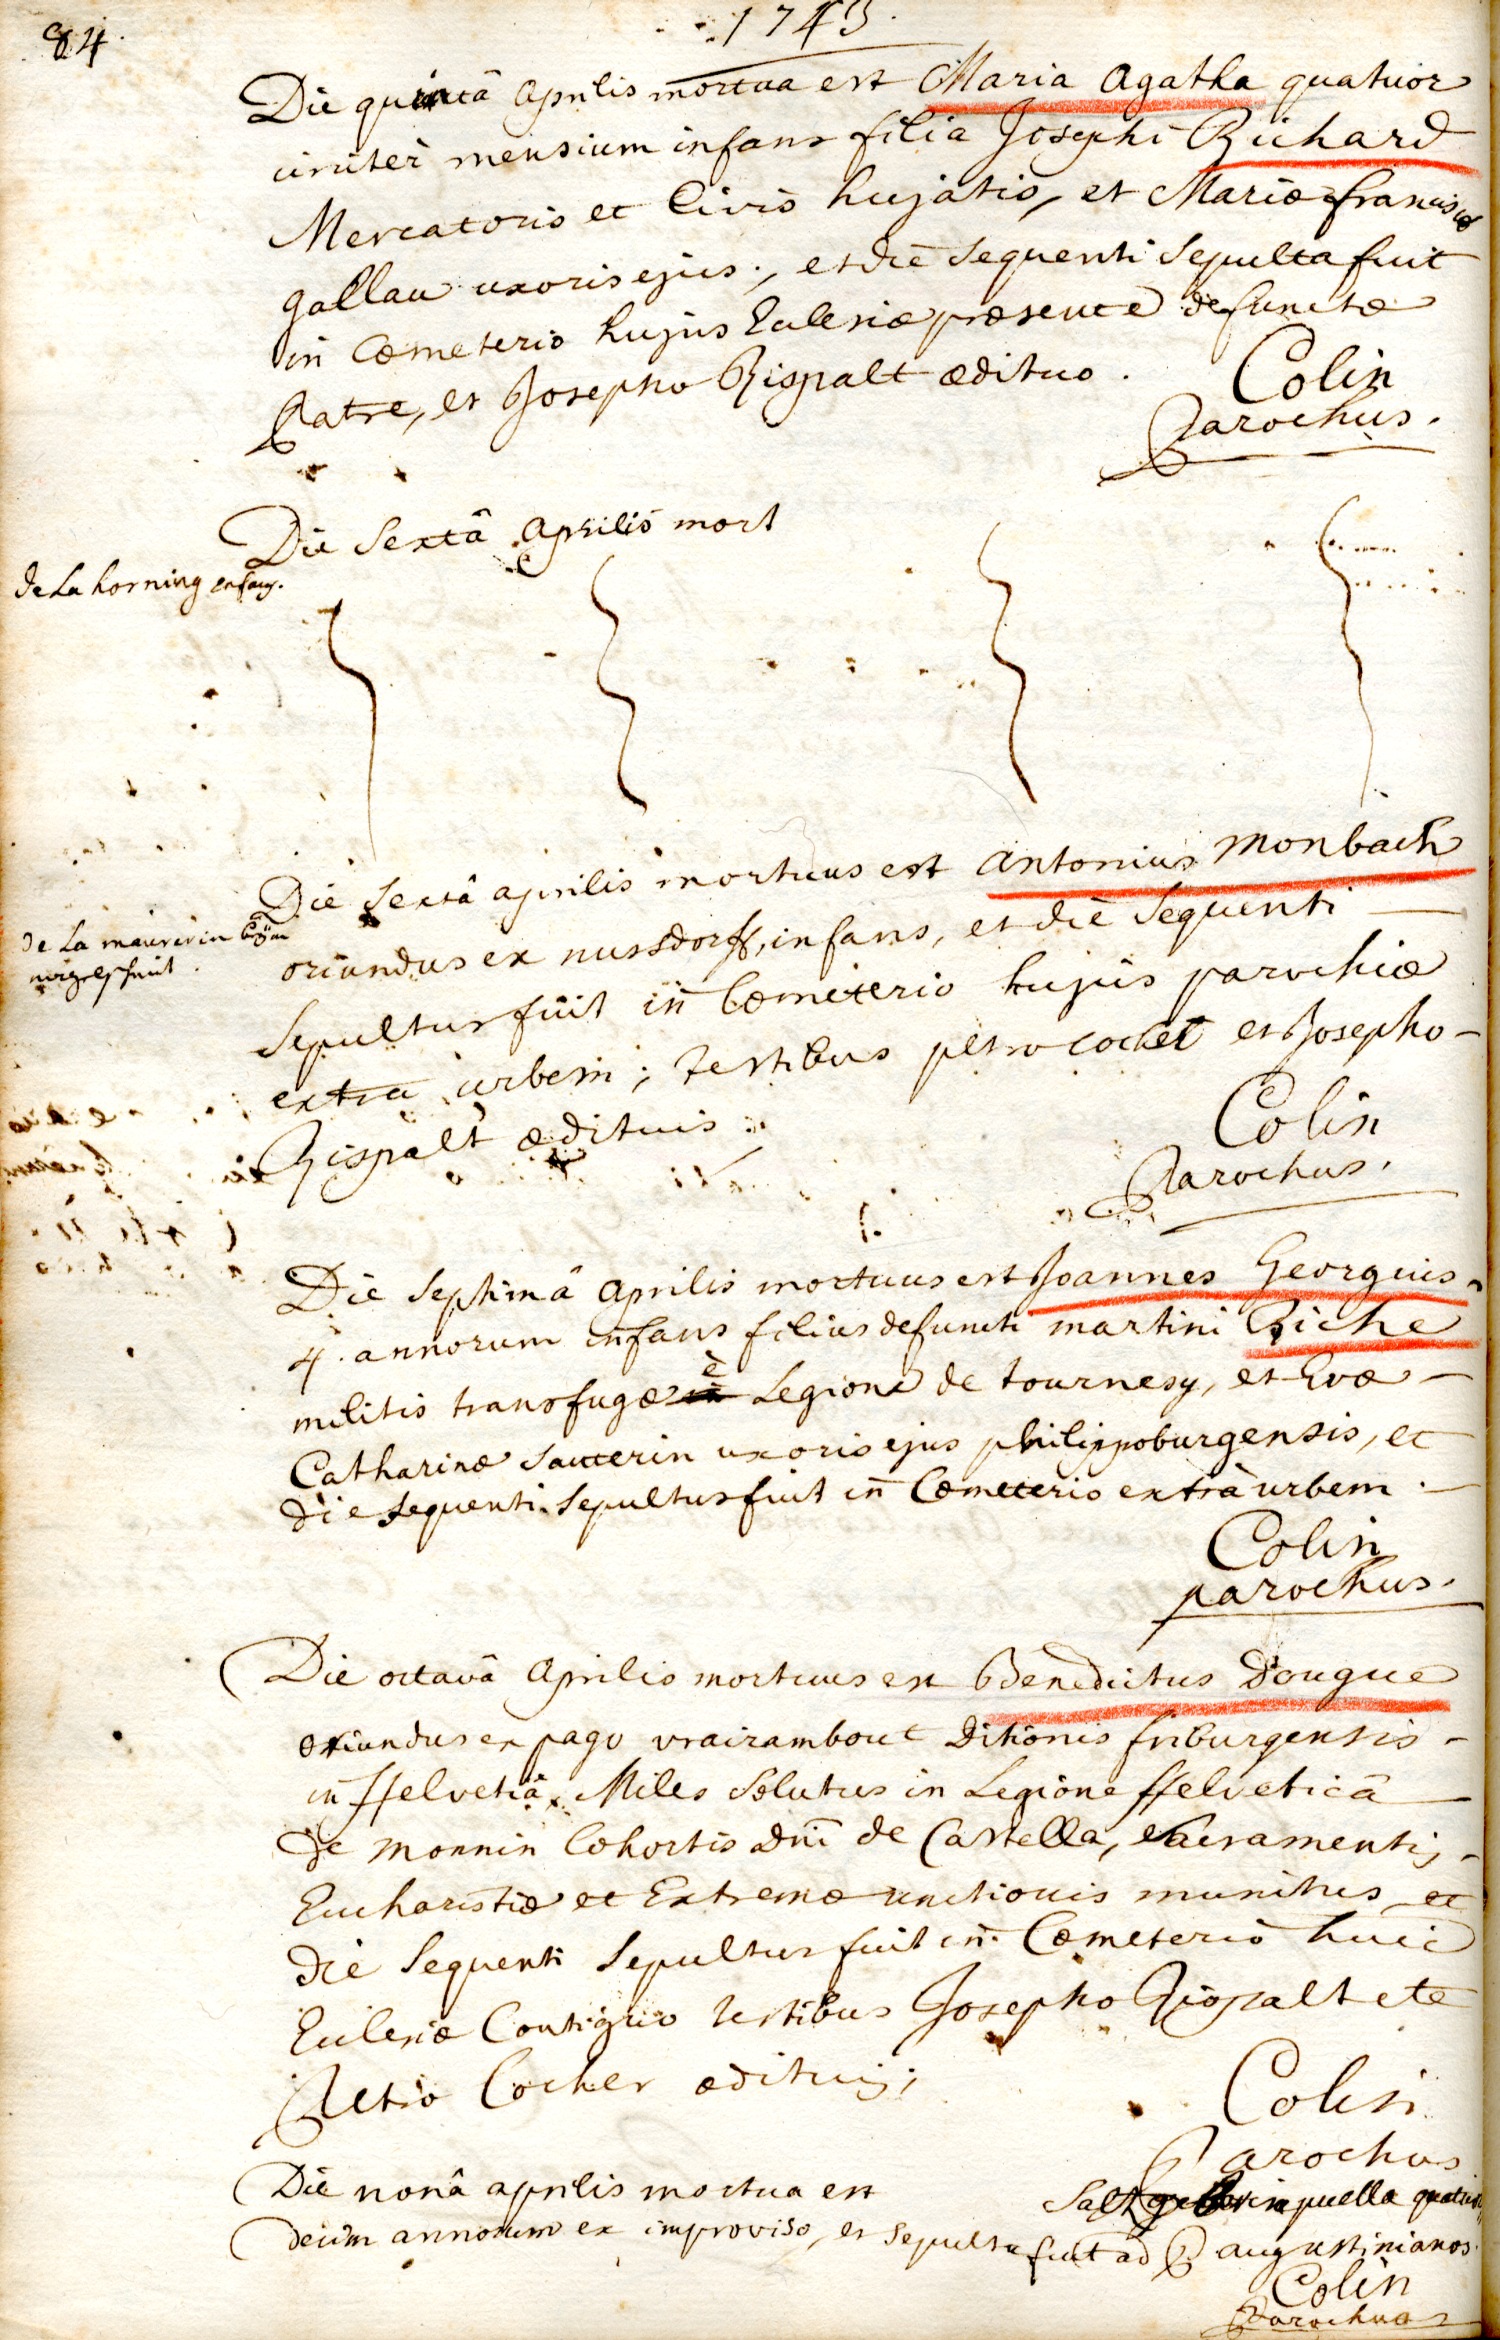 84.
1743.
Die quintâ Aprilis mortua est Maria Agatha quatuor
circiter mensium infans filia Josephi Richard
Mercatoris et Civis hujatis, et Mariæ franciscæ
gallau uxoris ejus, et die sequenti sepulta fuit
in Cœmeterio hujus Ecclesiæ præsente defunctæ
Patre, et Josepho Rispalt ædituo.
Colin
Parochus.
Die sextâ Aprilis mort
de la horning
Die sextâ aprilis mortuus est Antonius Monbach
de la maurerin
oriundus ex nussdorff, infans, et die sequenti
sepultus fuit in Cœmeterio hujus parochiæ
extra urbem; testibus petro cocher et Josepho
Rispalt ædituis.
Colin
Parochus.
Die septimâ Aprilis mortuus est Joannes Georgius
4. annorum infans filius defuncti martini Riche
militis transfugæ è Legione de tournesy, et Evæ
Catharinæ sauterin uxoris ejus philippoburgensis, et
die sequenti sepultus fuit in Cœmeterio extrà urbem.
Colin
parochus.
Die octavâ Aprilis mortuus est Benedictus Dougue
oriundus ex pago vrairambout Ditionis friburgensis
in Helvetiâ, Miles solutus in Legione Helveticâ
de monnin Cohortis Dni de Castella, sacramentis
Eucharistiæ et Extremæ unctionis munitus et
die sequenti sepultus fuit in Cœmeterio huic
Ecclesiæ Contiguo testibus Josepho Rispalt et
Petro Cocher ædituis;
Colin
Parochus
Die nonâ aprilis mortua est puella quatuor
decim annorum ex improviso, et sepulta fuit ad PP augustinianos.
Colin
Parochus